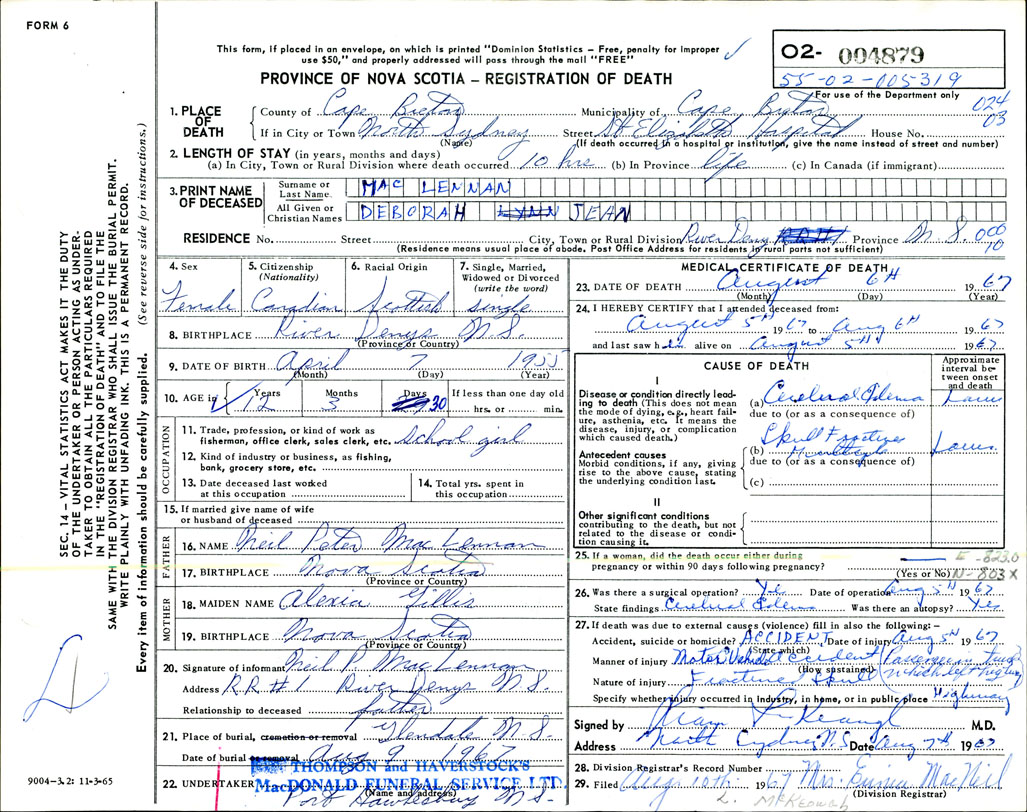 FORM 6
This form, if placed in an envelope, on which is printed "Dominion Statistics – Free, penalty for improper
use $50," and properly addressed will pass through the mail "FREE"
02- 004879
55-02-005319
For use of the Department only
PROVINCE OF NOVA SCOTIA – REGISTRATION OF DEATH
024
03
1. PLACE OF DEATH
County of Cape Breton Municipality of Cape Breton
If in City or Town North Sydney Street St Elizabeth Hospital House No.
(Name) (If death occurred in a hospital or institution, give the name instead of street and number)
2. LENGTH OF STAY (in years, months and days)
(a) In City, Town or Rural Division where death occurred 10 hrs (b) In Province life (c) In Canada (if immigrant)
3. PRINT NAME OF DECEASED
Surname or Last Name. MAC LENNAN
All Given or Christian Names DEBORAH LYNN JEAN
RESIDENCE No. Street City, Town or Rural Division River Deny Province N.S. 000
10
(Residence means usual place of abode. Post Office Address for residents in rural parts not sufficient)
4. Sex
Female
5. Citizenship
(Nationality)
Canadian
6. Racial Origin
Scottish
7. Single, Married,
Widowed or Divorced
(write the word)
single
8. BIRTHPLACE River Denys N.S.
(Province or Country)
9. DATE OF BIRTH April 7 1955
(Month) (Day) (Year)
10. AGE in Years Months Days If less than one day old
12 3 30 hrs. or min.
OCCUPATION
11. Trade, profession, or kind of work as
fisherman, office clerk, sales clerk, etc. School girl
12. Kind of industry or business, as fishing,
bank, grocery store, etc.
13. Date deceased last worked
at this occupation
14. Total yrs. spent in
this occupation
15. If married give name of wife
or husband of deceased
FATHER
16. NAME Neil Peter Mac Lennan
17. BIRTHPLACE Nova Scotia
(Province or Country)
MOTHER
18. MAIDEN NAME Alexia Gillis
19. BIRTHPLACE Nova Scotia
(Province or Country)
20. Signature of informant Neil P. Mac Lennan
Address R.R.#1 River Denys N.S.
Relationship to deceased father
21. Place of burial, cremation or removal Glendale N.S.
Date of burial or removal Aug 9 1967
22. UNDERTAKER THOMPSON and HAVERSTOCK'S
MacDONALD FUNERAL SERVICE LTD.
(Name and address)
Port Hawkesbury N.S.
MEDICAL CERTIFICATE OF DEATH
23. DATE OF DEATH August 6th 1967
(Month) (Day) (Year)
24. I HEREBY CERTIFY that I attended deceased from:
August 5th 1967 to Aug 6th 1967
and last saw her alive on August 5th 1967
CAUSE OF DEATH
Approximate
interval be-
tween onset
and death
I
Disease or condition directly lead-
ing to death (This does not mean
the mode of dying, e.g., heart fail-
ure, asthenia, etc. It means the
disease, injury, or complication
which caused death.)
(a) Cerebral Edema
due to (or as a consequence of)
Antecedent causes
Morbid conditions, if any, giving
rise to the above cause, stating
the underlying condition last.
Skull Fractures
(b) Multiple
due to (or as a consequence of)
(c)
II
Other significant conditions
contributing to the death, but not
related to the disease or condi-
tion causing it.
25. If a woman, did the death occur either during
pregnancy or within 90 days following pregnancy?
(Yes or No)
E-823.0
N-803 X
26. Was there a surgical operation? Yes Date of operation Aug 5th 1967
State findings Cerebral Edema Was there an autopsy? Yes
27. If death was due to external causes (violence) fill in also the following:–
Accident, suicide or homicide? ACCIDENT Date of injury Aug 5th 1967
(State which)
Manner of injury Motor Vehicle accident (Passenger in
(How sustained) which left highway)
Nature of injury Fracture Skull
Specify whether injury occurred in industry, in home, or in public place Highway
Signed by M.D.
Address North Sydney N.S. Date Aug 7th 1967
28. Division Registrar's Record Number
29. Filed Aug 10th 1967 Mrs. Emma MacNeil
(Division Registrar)
L. McKeough
SEC. 14 – VITAL STATISTICS ACT MAKES IT THE DUTY
OF THE UNDERTAKER OR PERSON ACTING AS UNDER-
TAKER TO OBTAIN ALL THE PARTICULARS REQUIRED
IN THE "REGISTRATION OF DEATH" AND TO FILE THE
SAME WITH THE DIVISION REGISTRAR WHO SHALL ISSUE THE BURIAL PERMIT.
WRITE PLAINLY WITH UNFADING INK. THIS IS A PERMANENT RECORD.
Every item of information should be carefully supplied. (See reverse side for instructions.)
9004-3.2: 11-3-65